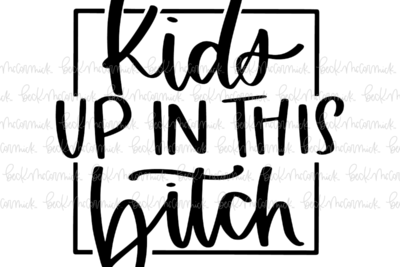 Kids
UP IN THIS
bitch